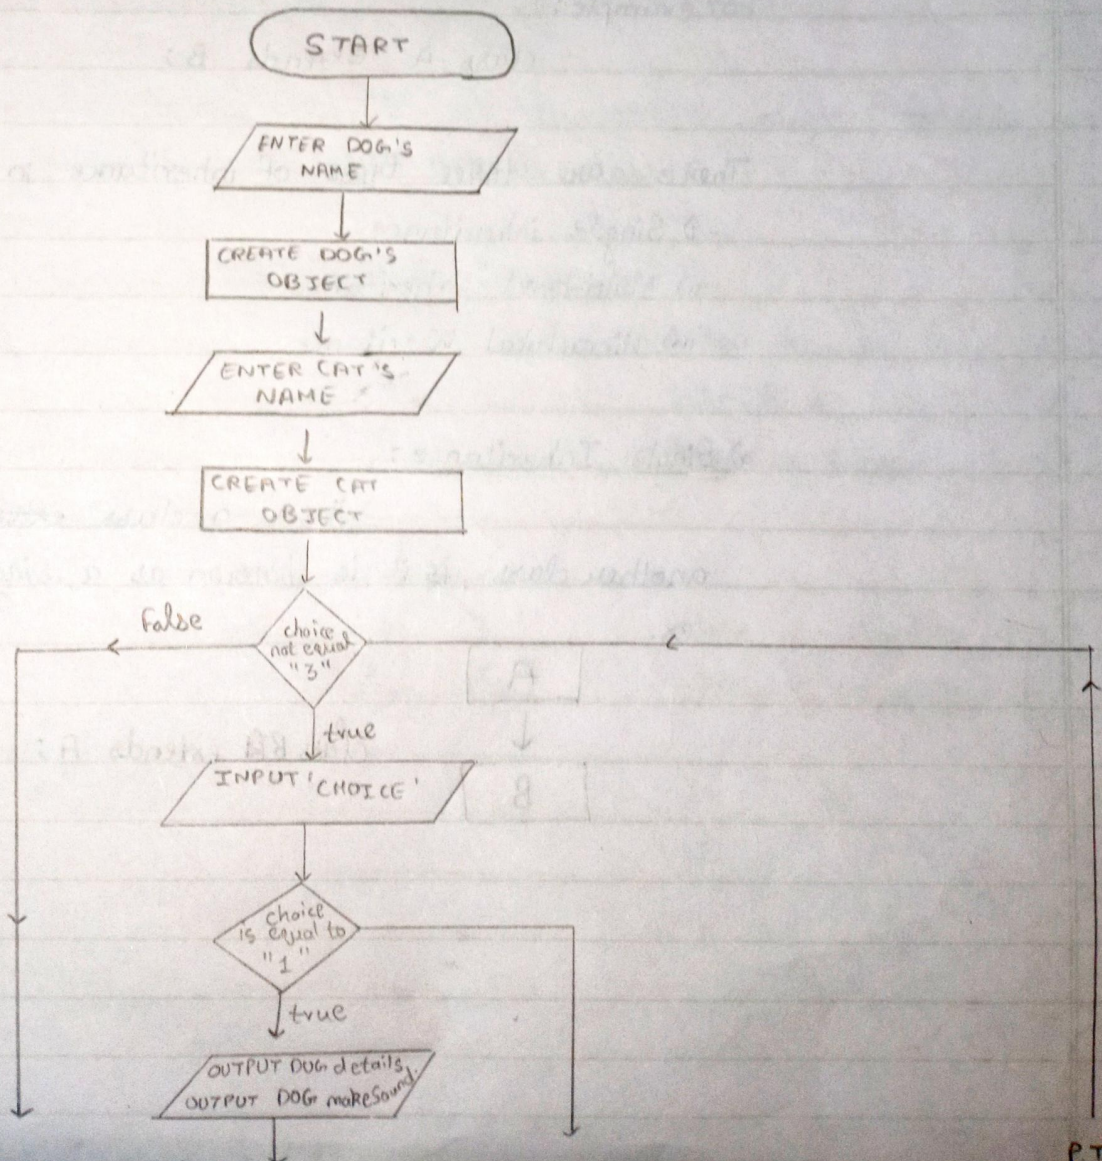 START
ENTER DOG'S
NAME
CREATE DOG'S
OBJECT
ENTER CAT'S
NAME
CREATE CAT
OBJECT
False
choice
not equal
"3"
true
INPUT 'CHOICE'
choice
is equal to
"1"
true
OUTPUT DOG details,
OUTPUT DOG makeSound.
P.T